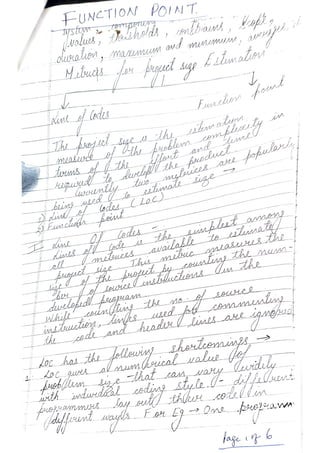 FUNCTION POINT.
system components
values, thresholds, constrains, scope,
duration, maximum and minimum, averages,
Metrics for project size Estimation
Line of Codes
Function point
The project size is the estimation
measure of the problem complexity in
terms of the effort and time
required to develop the product
currently two metrices are popularly
being used to estimate size →
1) Line of Codes, (LOC)
2) Function point
I Line Of Codes →
Lines of code is the simplest among
all metrices available to estimate
project size. This metric measures the
size of the project by counting the num-
ber of source instructions in the
developed program
While counting the no. of source
instruction, lines used for commenting
the code and header lines are ignored
LOC has the following shortcomings →
1. LOC gives a numerical value of
problem size that can vary widely
with individual coding style - different
programmers lay out their code in
different ways For Eg → One program
Page 1 of 6